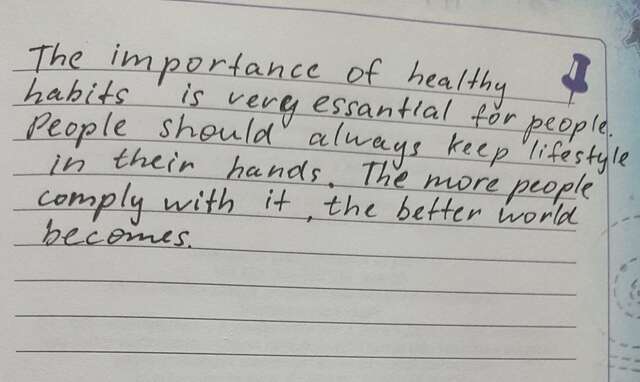 The importance of healthy
habits is very essantial for people.
People should always keep lifestyle
in their hands. The more people
comply with it, the better world
becomes.